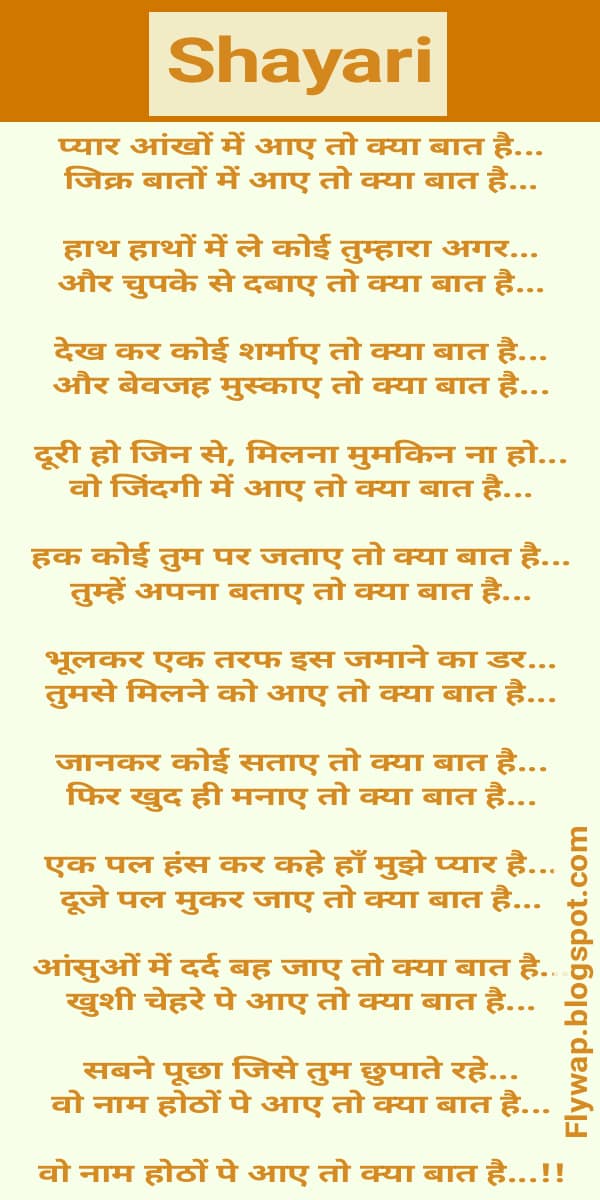 Shayari
प्यार आंखों में आए तो क्या बात है...
जिक्र बातों में आए तो क्या बात है...
हाथ हाथों में ले कोई तुम्हारा अगर...
और चुपके से दबाए तो क्या बात है...
देख कर कोई शर्माए तो क्या बात है...
और बेवजह मुस्काए तो क्या बात है...
दूरी हो जिन से, मिलना मुमकिन ना हो...
वो जिंदगी में आए तो क्या बात है...
हक कोई तुम पर जताए तो क्या बात है...
तुम्हें अपना बताए तो क्या बात है...
भूलकर एक तरफ इस जमाने का डर...
तुमसे मिलने को आए तो क्या बात है...
जानकर कोई सताए तो क्या बात है...
फिर खुद ही मनाए तो क्या बात है...
एक पल हंस कर कहे हाँ मुझे प्यार है...
दूजे पल मुकर जाए तो क्या बात है...
आंसुओं में दर्द बह जाए तो क्या बात है...
खुशी चेहरे पे आए तो क्या बात है...
सबने पूछा जिसे तुम छुपाते रहे...
वो नाम होठों पे आए तो क्या बात है...
वो नाम होठों पे आए तो क्या बात है...!!
Flywap.blogspot.com